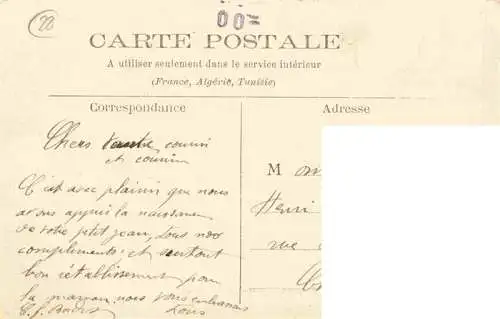 22
00=
CARTE POSTALE
A utiliser seulement dans le service intérieur
(France, Algérie, Tunisie)
Correspondance
Adresse
Chers cousin
et cousine
C'est avec plaisir que nous
avons appris la naissance
de votre petit Jean, tous nos
compliments et surtout
bon rétablissement pour
la maman, nous vous embrassons
tous
M
Henri
rue